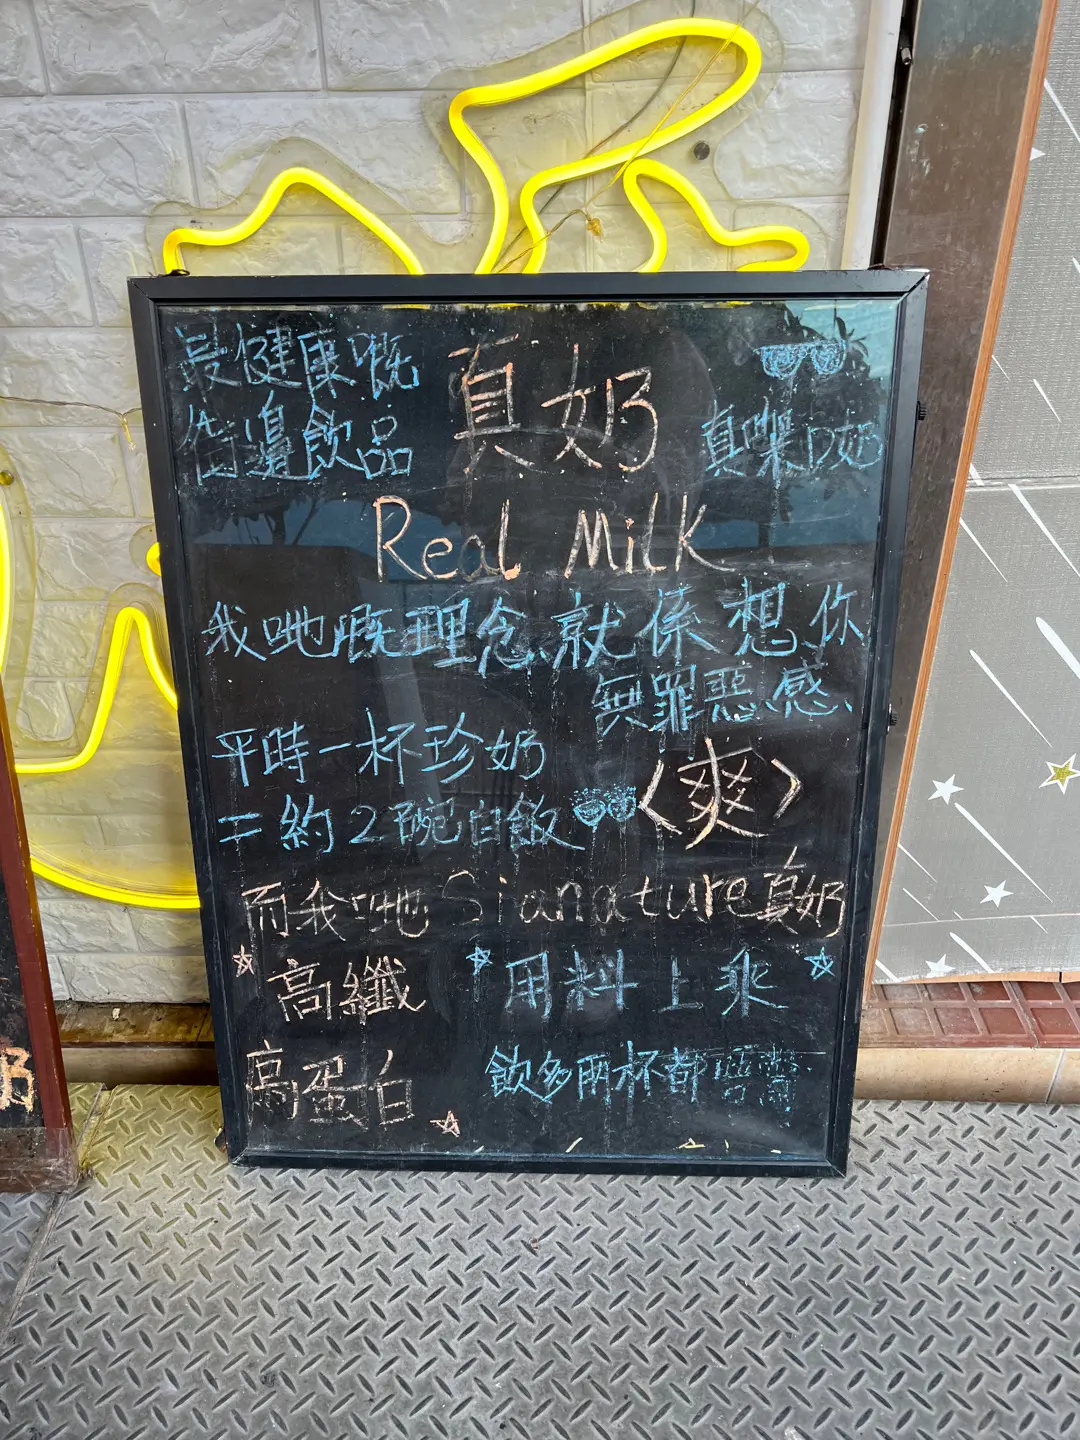 最健康嘅
街邊飲品
真奶
真㗎
Real Milk
我哋嘅理念就係想你
無罪惡感
平時一杯珍奶
=約2碗白飯
〈爽〉
而我哋Signature真奶
高纖
用料上乘
高蛋白
飲多兩杯都
奶